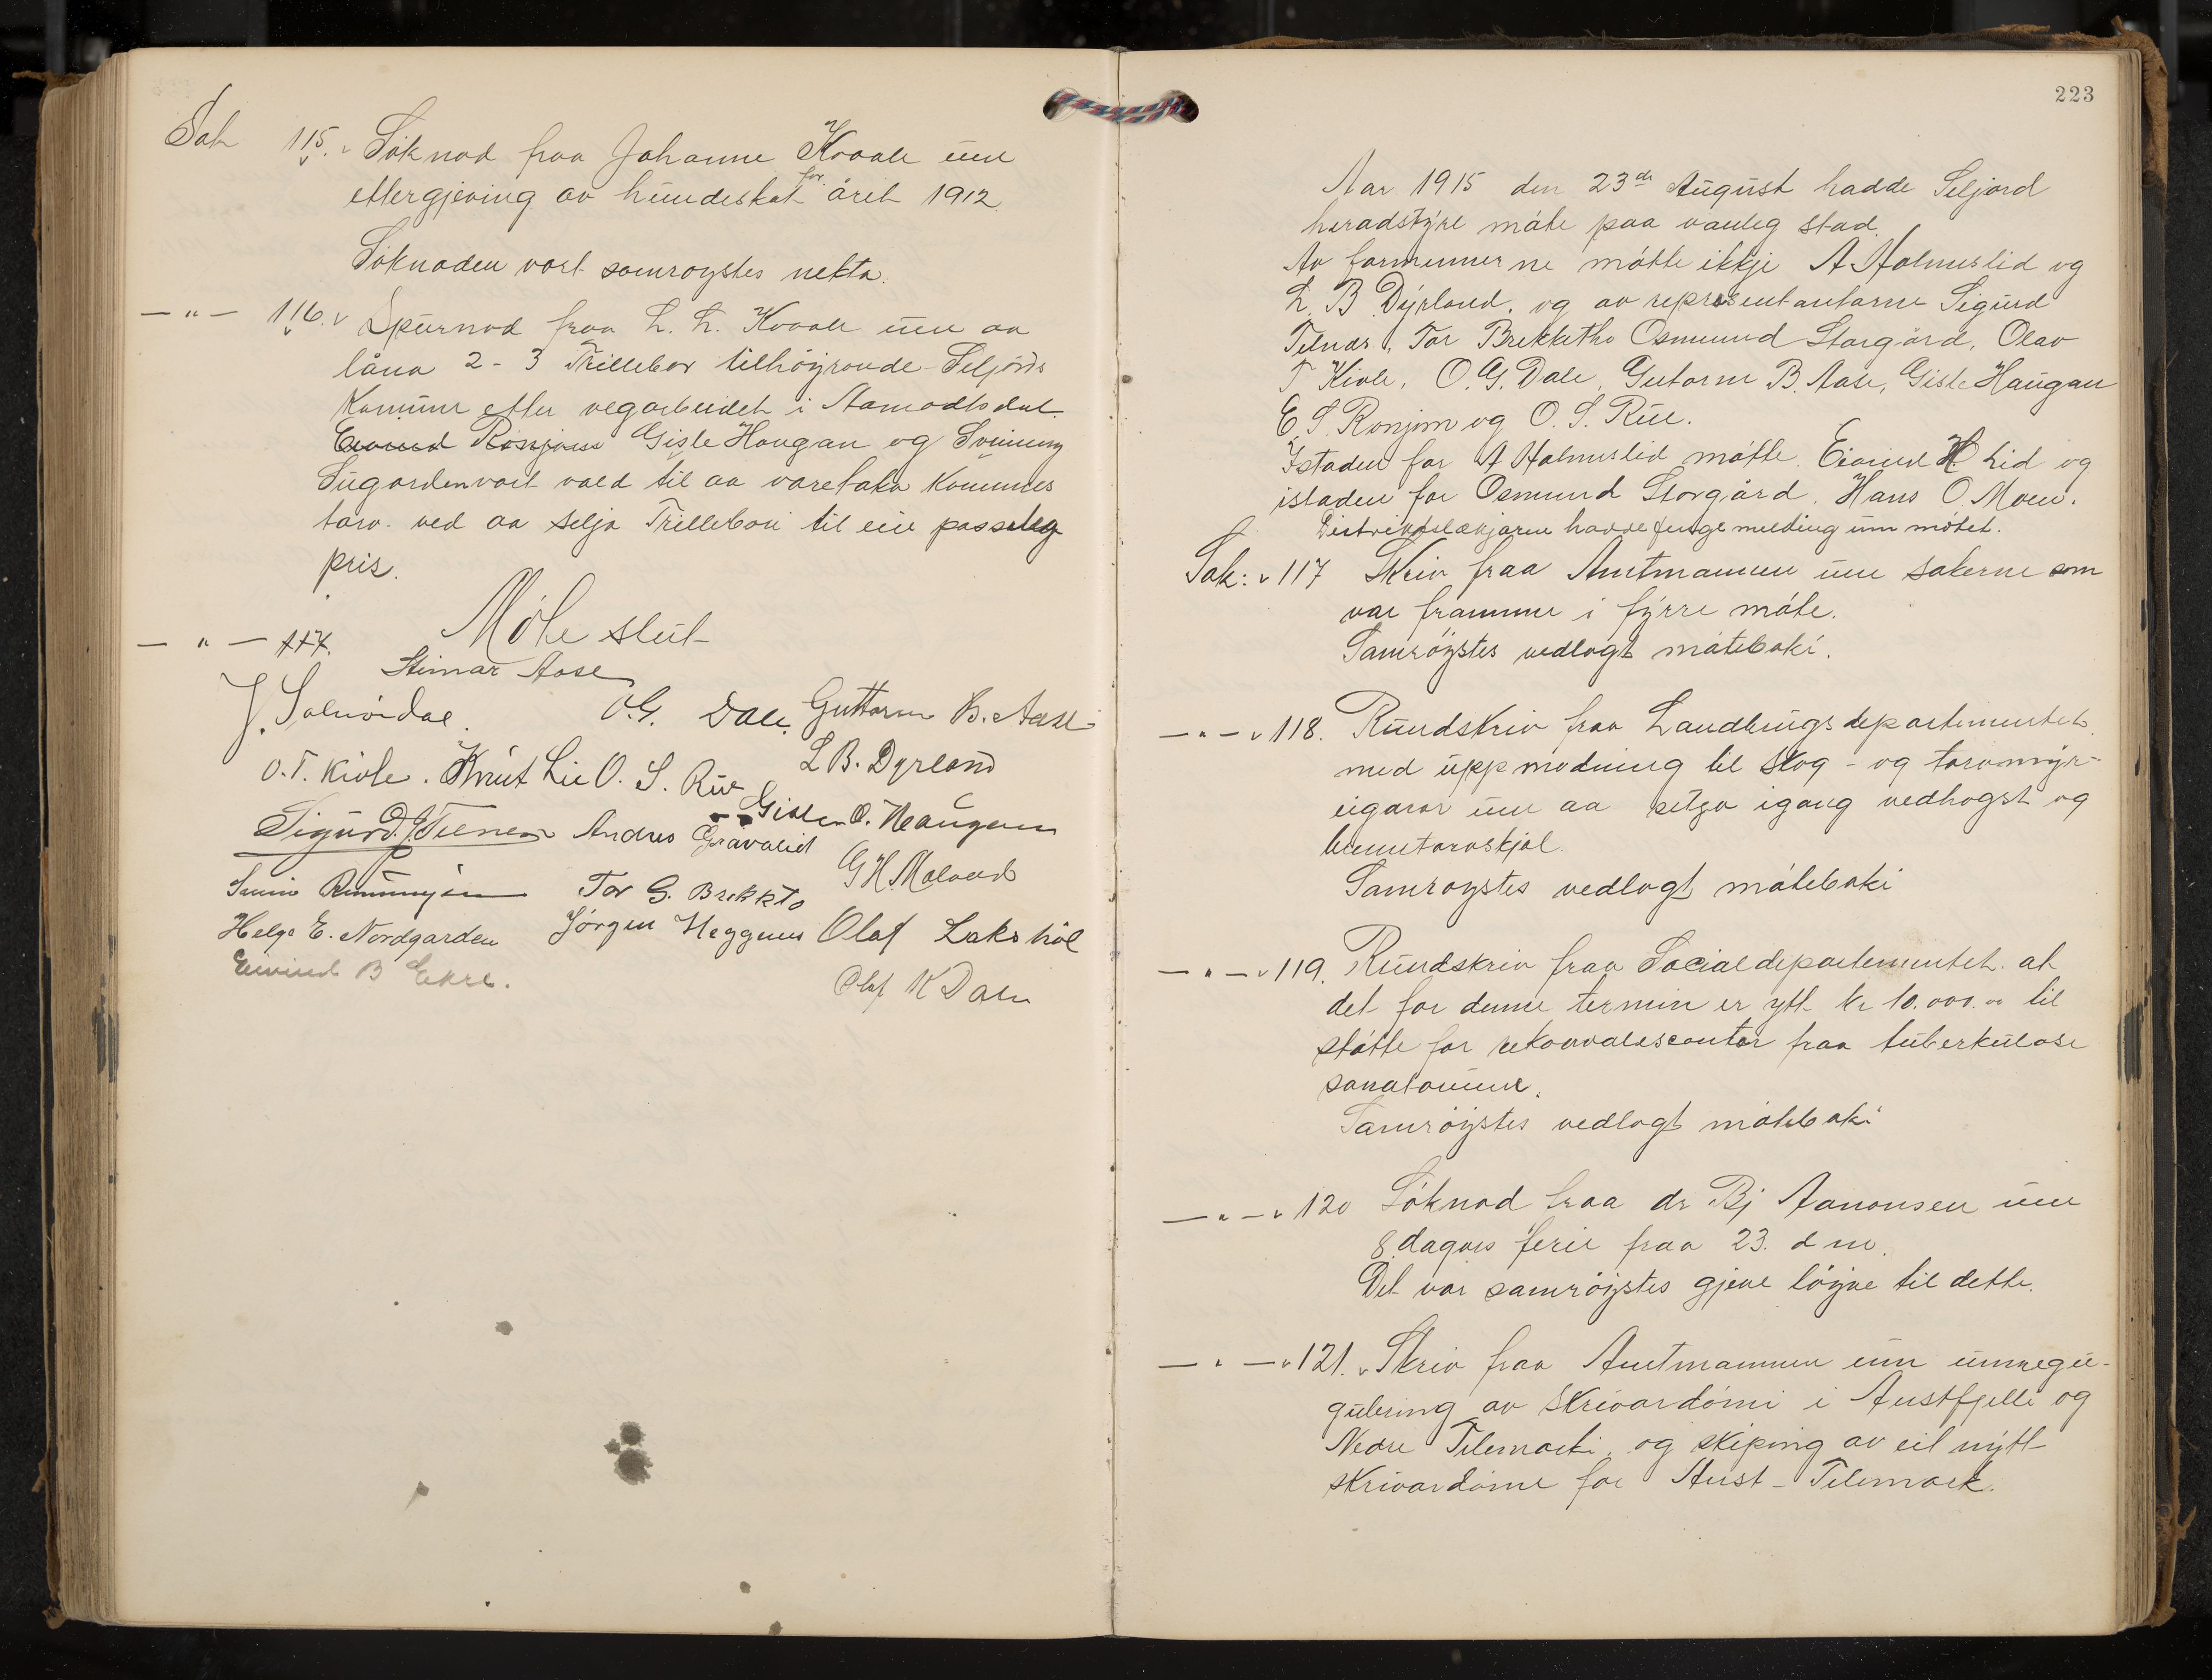 Sak 115. Søknad fraa Johanne Kvaale um
ettergjeving av hundeskat for året 1912.
Søknaden vart samrøystes nekta.
— " — 116. Spurnad fraa H. H. Kvaale um aa
låna 2 - 3 Trillebor tilhøyrande Seljords
Komune etter vegarbeidet i Aamodtsdal.
Eivind Ronjom Gisle Haugan og Sveinung
Sugarden vart vald til aa vareta Kommunes
tarv. ved aa selja Trillebori til ein passeleg
pris.
— " — 117. Møte slut
Steinar Aase
J. Solvordal. O.G. Dale. Guttorm B. Aase
O. T. Kivle. Knut Lie O. S. Rue L B. Dyrland
Sigurd. J. Telnes Andres Grávalid Gisle O. Haugan
G H. Moland
Tor G. Brekkto
Helge E. Nordgarden Jørgen Heggenes Olaf Lakshøl
Eivind B Ekre. Olaf K Dale
223
Aar 1915 den 23de August hadde Seljord
heradstyre møte paa vanleg stad.
Av formennerne møtte ikkje A Holmslid og
L. B. Dyrland. og av representantarne Sigurd
Telnes, Tor Brekketho Osmund Storgård, Olav
T Kivle. O. G. Dale, Gutorm B. Aase, Gisle Haugan
E. S. Ronjom og O. S. Rue.
Istaden for A Holmslid møtte Eivind H Lid og
istaden for Osmund Storgård. Hans O. Moen.
Distriktslækjaren hadde fenge melding um møtet.
Sak: 117 Skriv fraa Amtmannen um sakerne som
var framme i fyrre møte.
Samrøystes vedlagt møteboki.
— " — 118. Rundskriv fraa Landbrugsdepartementet
med uppmodning til skog - og torvmyr-
eigarar um aa setja igang vedhogst og
brenntorvskjol.
Samrøystes vedlagt møteboki
— " — 119. Rundskriv fraa Socialdepartementet. at
det for denne termin er ytt kr 10.000.00 til
støtte for rekonvalescenter fraa tuberkulose
sanatorium.
Samrøystes vedlagt møteboki
— " — 120 Søknad fraa dr Bj Aanonsen um
8 dagars ferie fraa 23. d m.
Det var samrøystes gjeve løyve til dette.
— " — 121. Skriv fraa Amtmannen um umregu-
gulering av Skrivardømi i Austfjelli og
Nedre Telemarki, og skiping av eit nytt
skrivardøme for Aust - Telemark.